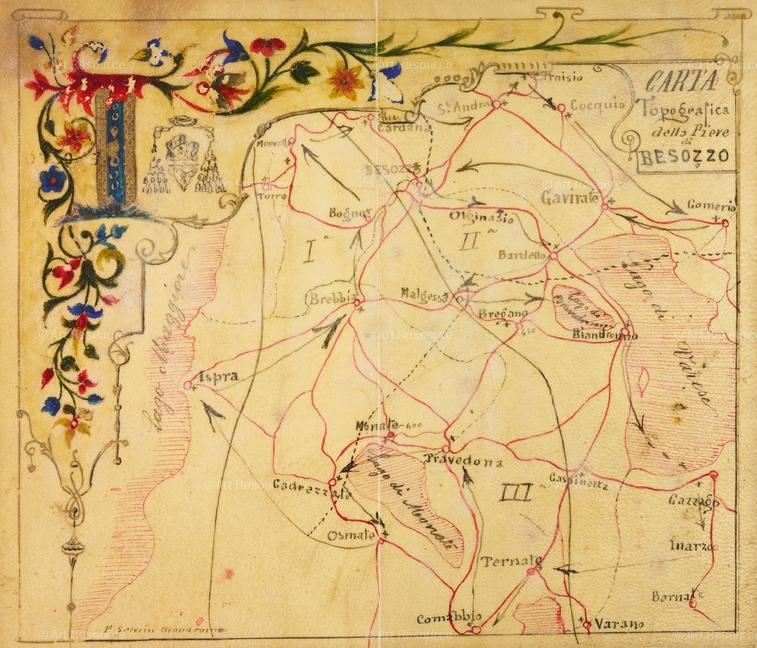 CARTA
Topografica
della Pieve
di
BESOZZO
Sn Andrea
Cocquio
Cardana
BESOZZO
Torre
Bogno
Olginasio
Gavirate
Gomerio
I
II
Bardello
Lago di Varese
Lago Maggiore
Brebbia
Malgesso
Bregano
Lago di
Biandronno
Ispra
Monate
Travedona
Cadrezzate
Lago di Monate
III
Cazzago
Osmate
Inarzo
Ternate
Bernate
Comabbio
Varano